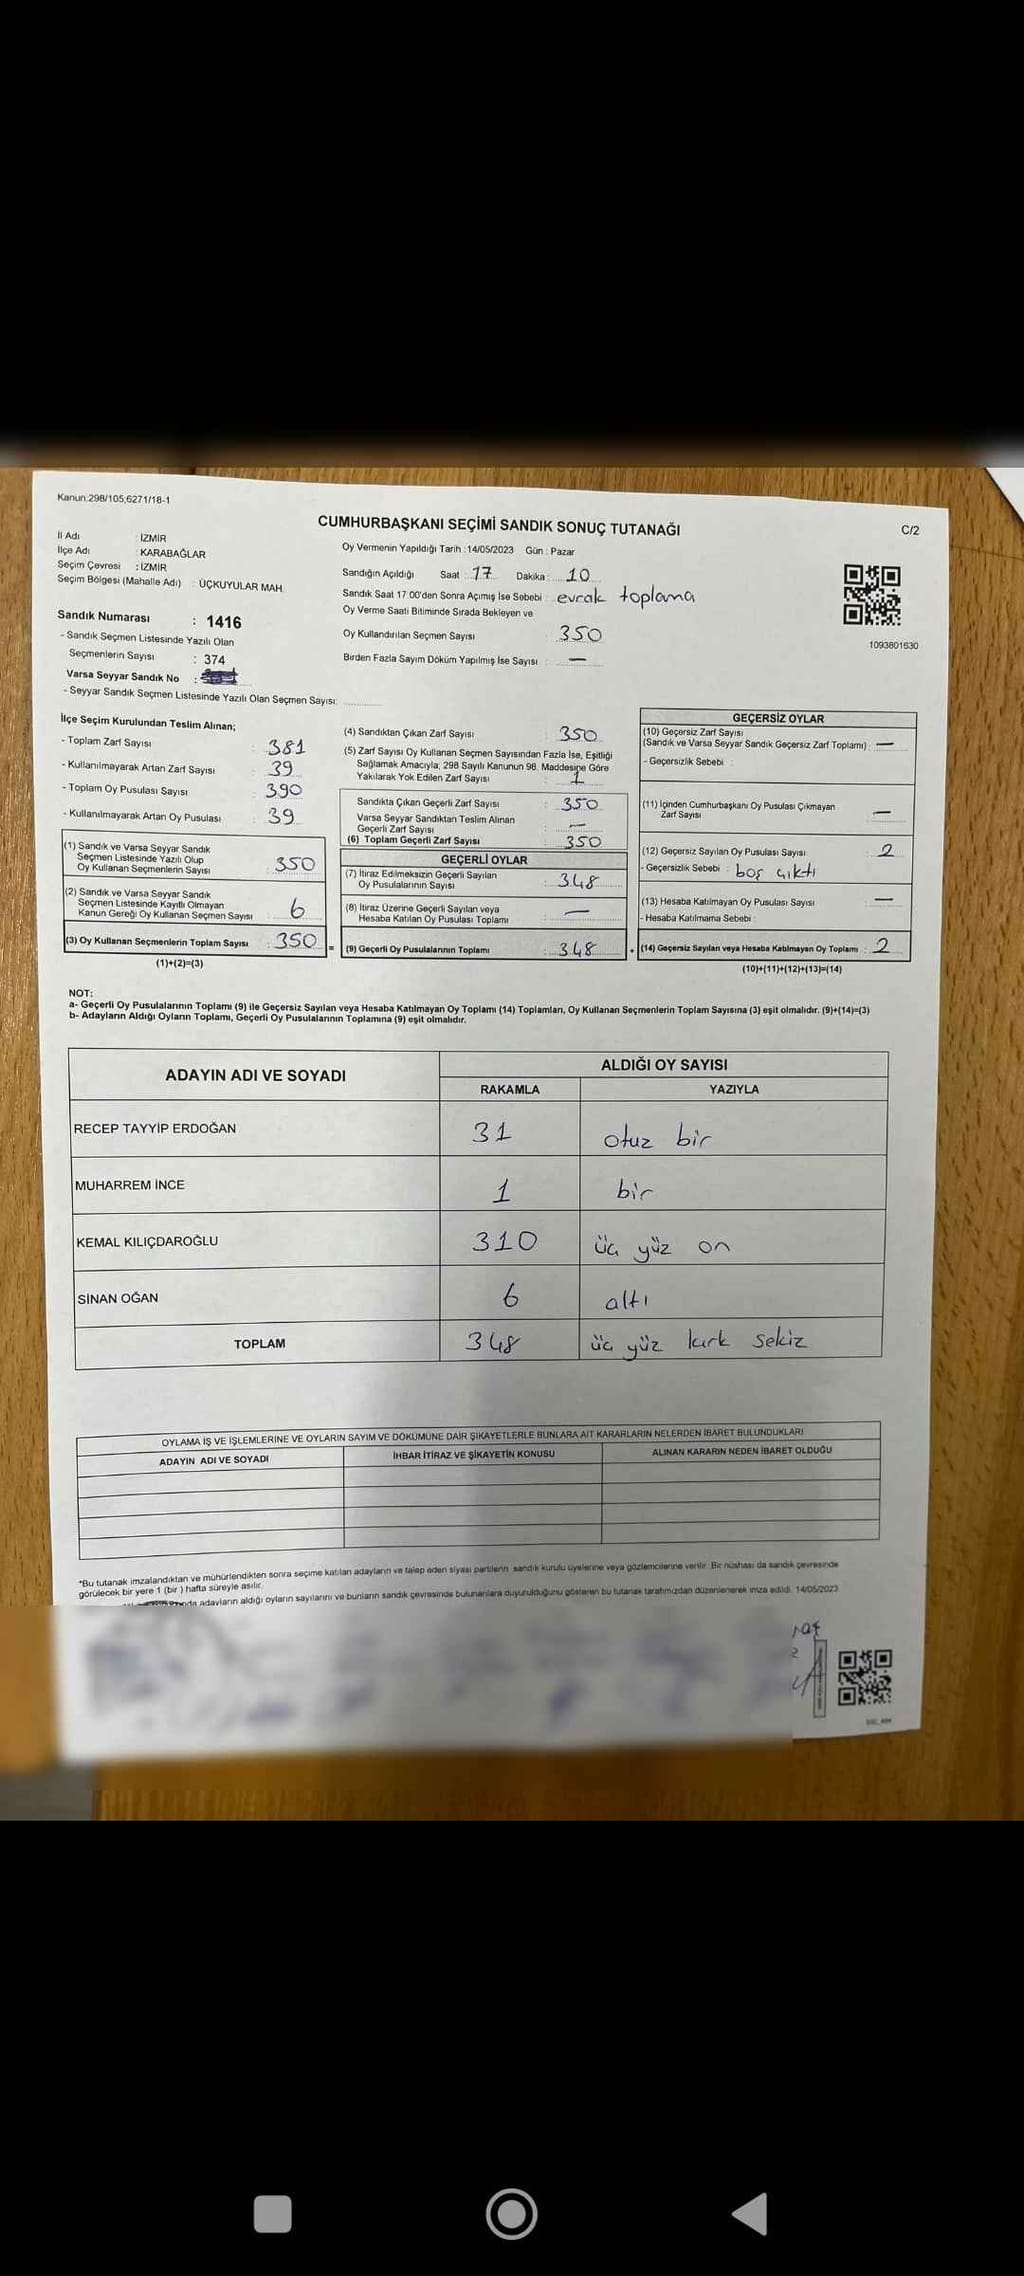 Kanun:298/105;6271/18-1
CUMHURBAŞKANI SEÇİMİ SANDIK SONUÇ TUTANAĞI
C/2
İl Adı : İZMİR
İlçe Adı : KARABAĞLAR
Seçim Çevresi : İZMİR
Seçim Bölgesi (Mahalle Adı) : ÜÇKUYULAR MAH.
Sandık Numarası : 1416
- Sandık Seçmen Listesinde Yazılı Olan
Seçmenlerin Sayısı : 374
Varsa Seyyar Sandık No :
- Seyyar Sandık Seçmen Listesinde Yazılı Olan Seçmen Sayısı:
Oy Vermenin Yapıldığı Tarih :14/05/2023 Gün : Pazar
Sandığın Açıldığı Saat : 17 Dakika : 10
Sandık Saat 17 00'den Sonra Açımış İse Sebebi : evrak toplama
Oy Verme Saati Bitiminde Sırada Bekleyen ve
Oy Kullandırılan Seçmen Sayısı : 350
Birden Fazla Sayım Döküm Yapılmış İse Sayısı : —
1093801630
İlçe Seçim Kurulundan Teslim Alınan;
- Toplam Zarf Sayısı : 381
- Kullanılmayarak Artan Zarf Sayısı : 39
- Toplam Oy Pusulası Sayısı : 390
- Kullanılmayarak Artan Oy Pusulası : 39
(1) Sandık ve Varsa Seyyar Sandık
Seçmen Listesinde Yazılı Olup
Oy Kullanan Seçmenlerin Sayısı : 350
(2) Sandık ve Varsa Seyyar Sandık
Seçmen Listesinde Kayıtlı Olmayan
Kanun Gereği Oy Kullanan Seçmen Sayısı : 6
(3) Oy Kullanan Seçmenlerin Toplam Sayısı : 350 =
(1)+(2)=(3)
(4) Sandıktan Çıkan Zarf Sayısı : 350
(5) Zarf Sayısı Oy Kullanan Seçmen Sayısından Fazla İse, Eşitliği
Sağlamak Amacıyla; 298 Sayılı Kanunun 98. Maddesine Göre
Yakılarak Yok Edilen Zarf Sayısı : 1
Sandıkta Çıkan Geçerli Zarf Sayısı : 350
Varsa Seyyar Sandıktan Teslim Alınan
Geçerli Zarf Sayısı : —
(6) Toplam Geçerli Zarf Sayısı : 350
GEÇERLİ OYLAR
(7) İtiraz Edilmeksizin Geçerli Sayılan
Oy Pusulalarının Sayısı : 348
(8) İtiraz Üzerine Geçerli Sayılan veya
Hesaba Katılan Oy Pusulası Toplamı : —
(9) Geçerli Oy Pusulalarının Toplamı : 348 +
GEÇERSİZ OYLAR
(10) Geçersiz Zarf Sayısı
(Sandık ve Varsa Seyyar Sandık Geçersiz Zarf Toplamı) : —
- Geçersizlik Sebebi :
(11) İçinden Cumhurbaşkanı Oy Pusulası Çıkmayan
Zarf Sayısı : —
(12) Geçersiz Sayılan Oy Pusulası Sayısı : 2
- Geçersizlik Sebebi : boş çıktı
(13) Hesaba Katılmayan Oy Pusulası Sayısı : —
- Hesaba Katılmama Sebebi :
(14) Geçersiz Sayılan veya Hesaba Katılmayan Oy Toplamı : 2
(10)+(11)+(12)+(13)=(14)
NOT:
a- Geçerli Oy Pusulalarının Toplamı (9) ile Geçersiz Sayılan veya Hesaba Katılmayan Oy Toplamı (14) Toplamları, Oy Kullanan Seçmenlerin Toplam Sayısına (3) eşit olmalıdır. (9)+(14)=(3)
b- Adayların Aldığı Oyların Toplamı, Geçerli Oy Pusulalarının Toplamına (9) eşit olmalıdır.
ADAYIN ADI VE SOYADI ALDIĞI OY SAYISI
RAKAMLA YAZIYLA
RECEP TAYYİP ERDOĞAN 31 otuz bir
MUHARREM İNCE 1 bir
KEMAL KILIÇDAROĞLU 310 üç yüz on
SİNAN OĞAN 6 altı
TOPLAM 348 üç yüz kırk sekiz
OYLAMA İŞ VE İŞLEMLERİNE VE OYLARIN SAYIM VE DÖKÜMÜNE DAİR ŞİKAYETLERLE BUNLARA AİT KARARLARIN NELERDEN İBARET BULUNDUKLARI
ADAYIN ADI VE SOYADI İHBAR İTİRAZ VE ŞİKAYETİN KONUSU ALINAN KARARIN NEDEN İBARET OLDUĞU
*Bu tutanak imzalandıktan ve mühürlendikten sonra seçime katılan adayların ve talep eden siyasi partilerin sandık kurulu üyelerine veya gözlemcilerine verilir. Bir nüshası da sandık çevresinde
görülecek bir yere 1 (bir ) hafta süreyle asılır.
adayların aldığı oyların sayılarını ve bunların sandık çevresinde bulunanlara duyurulduğunu gösteren bu tutanak tarafımızdan düzenlenerek imza edildi. 14/05/2023